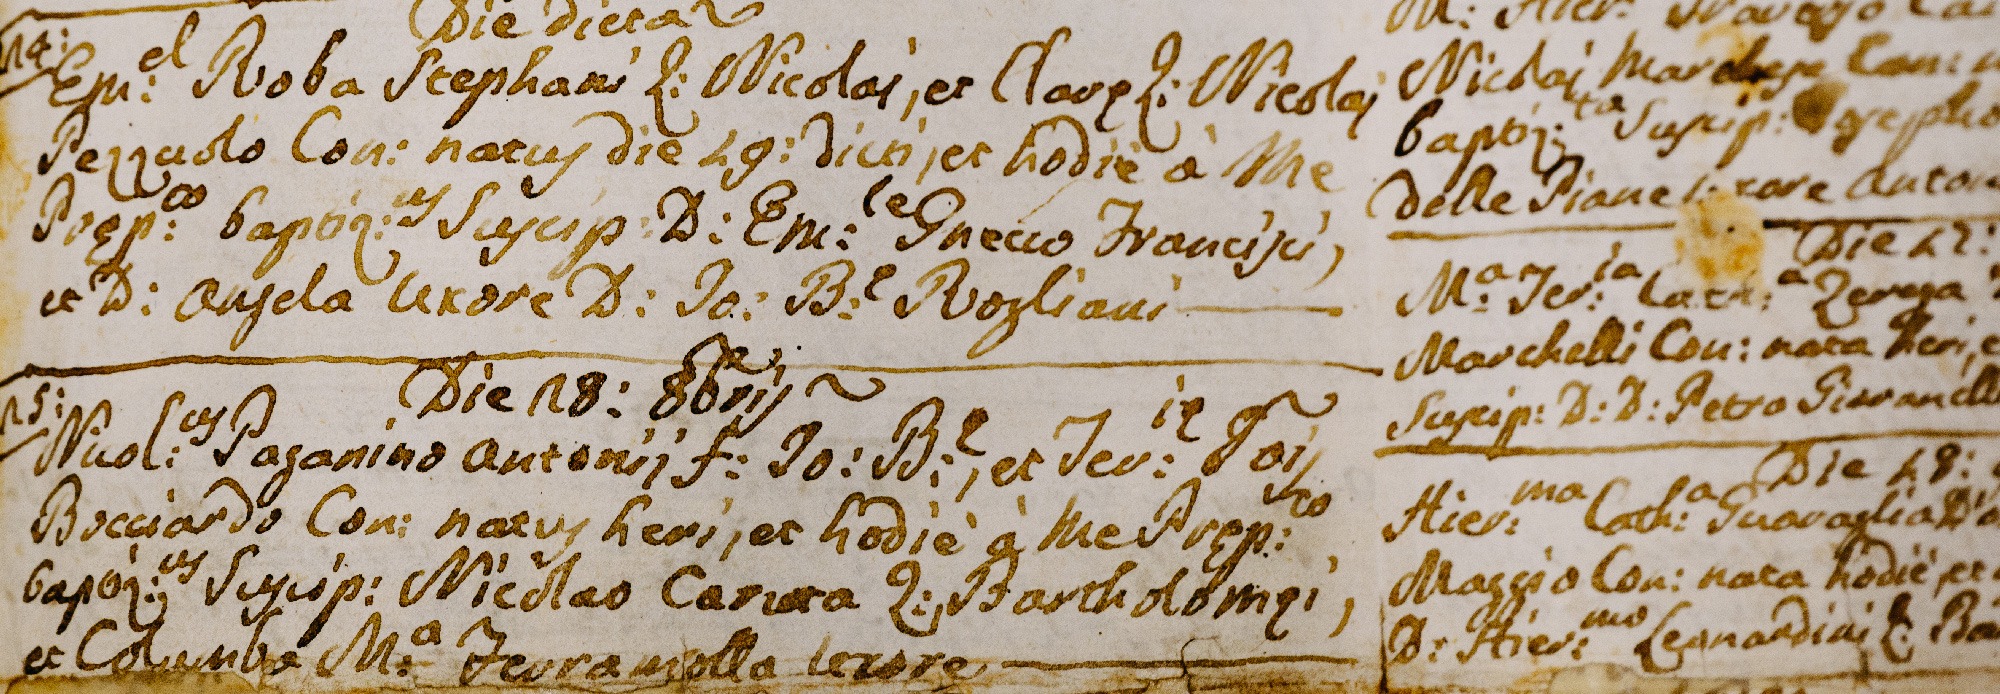 Die dicta
14:
Em:el Roba Stephani Q: Nicolai, et Claræ Q: Nicolai
Pezzuolo Con: natus die 29: dicti, et hodiè à Me
Præp:to baptiz:us Suscip: D: Em:le Gnecco Francisci,
et D: Angela Uxore D: Jo: B:e Rogliani
Die 28: 8bris
15:
Nicol:us Paganino Antonij f: Jo: B:e, et Ter:iæ
Bocciardo Con: natus heri, et hodiè à Me Præp:to
baptiz:us Suscip: Nicolao Caruta Q: Bartholomæi,
et Columba M:a Ferramolla Uxore
M: Hier:
Nicolai Marchese Con:
baptiz:ta Suscip: Josepho
delle Piane Uxore Anton
Die 27:
M:a Ter:ia Cath:a Zerega
Marchelli Con: nata heri, e
Suscip: D: D: Petro Giovanelli
Die 28:
Hier:ma Cath:a Guaraglia
Maggio Con: nata hodiè, et
D: Hier:mo Leonardini Q: Ba